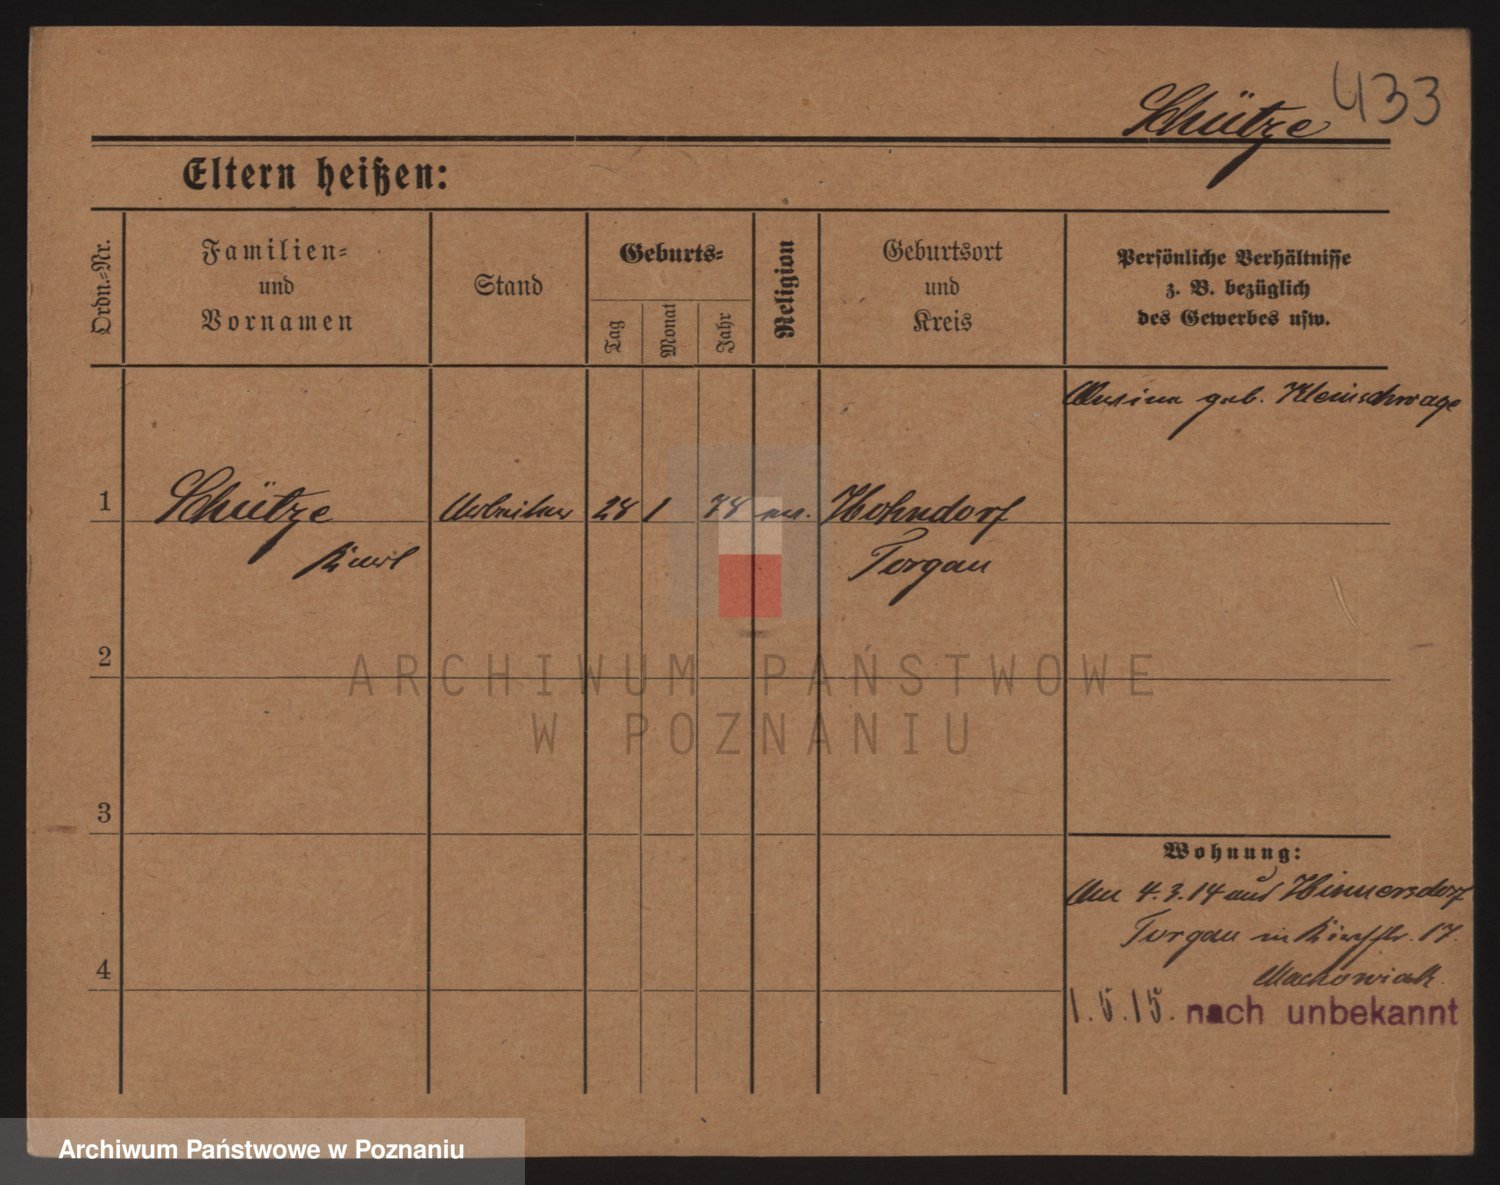 Schütze 433
Eltern heißen:
Ordn.=Nr.
Familien=
und
Vornamen
Stand
Geburts=
Tag
Monat
Jahr
Religion
Geburtsort
und
Kreis
Persönliche Verhältnisse
z. B. bezüglich
des Gewerbes usw.
geb. Kleinschwage
1 Schütze Arbeiter 28 1 78 Hohndorf
Karl Torgau
2
3
4
Wohnung:
Am 4.3.14 aus
Torgau in 17.
Machowiak.
1.5.15. nach unbekannt
ARCHIWUM PAŃSTWOWE
W POZNANIU
Archiwum Państwowe w Poznaniu